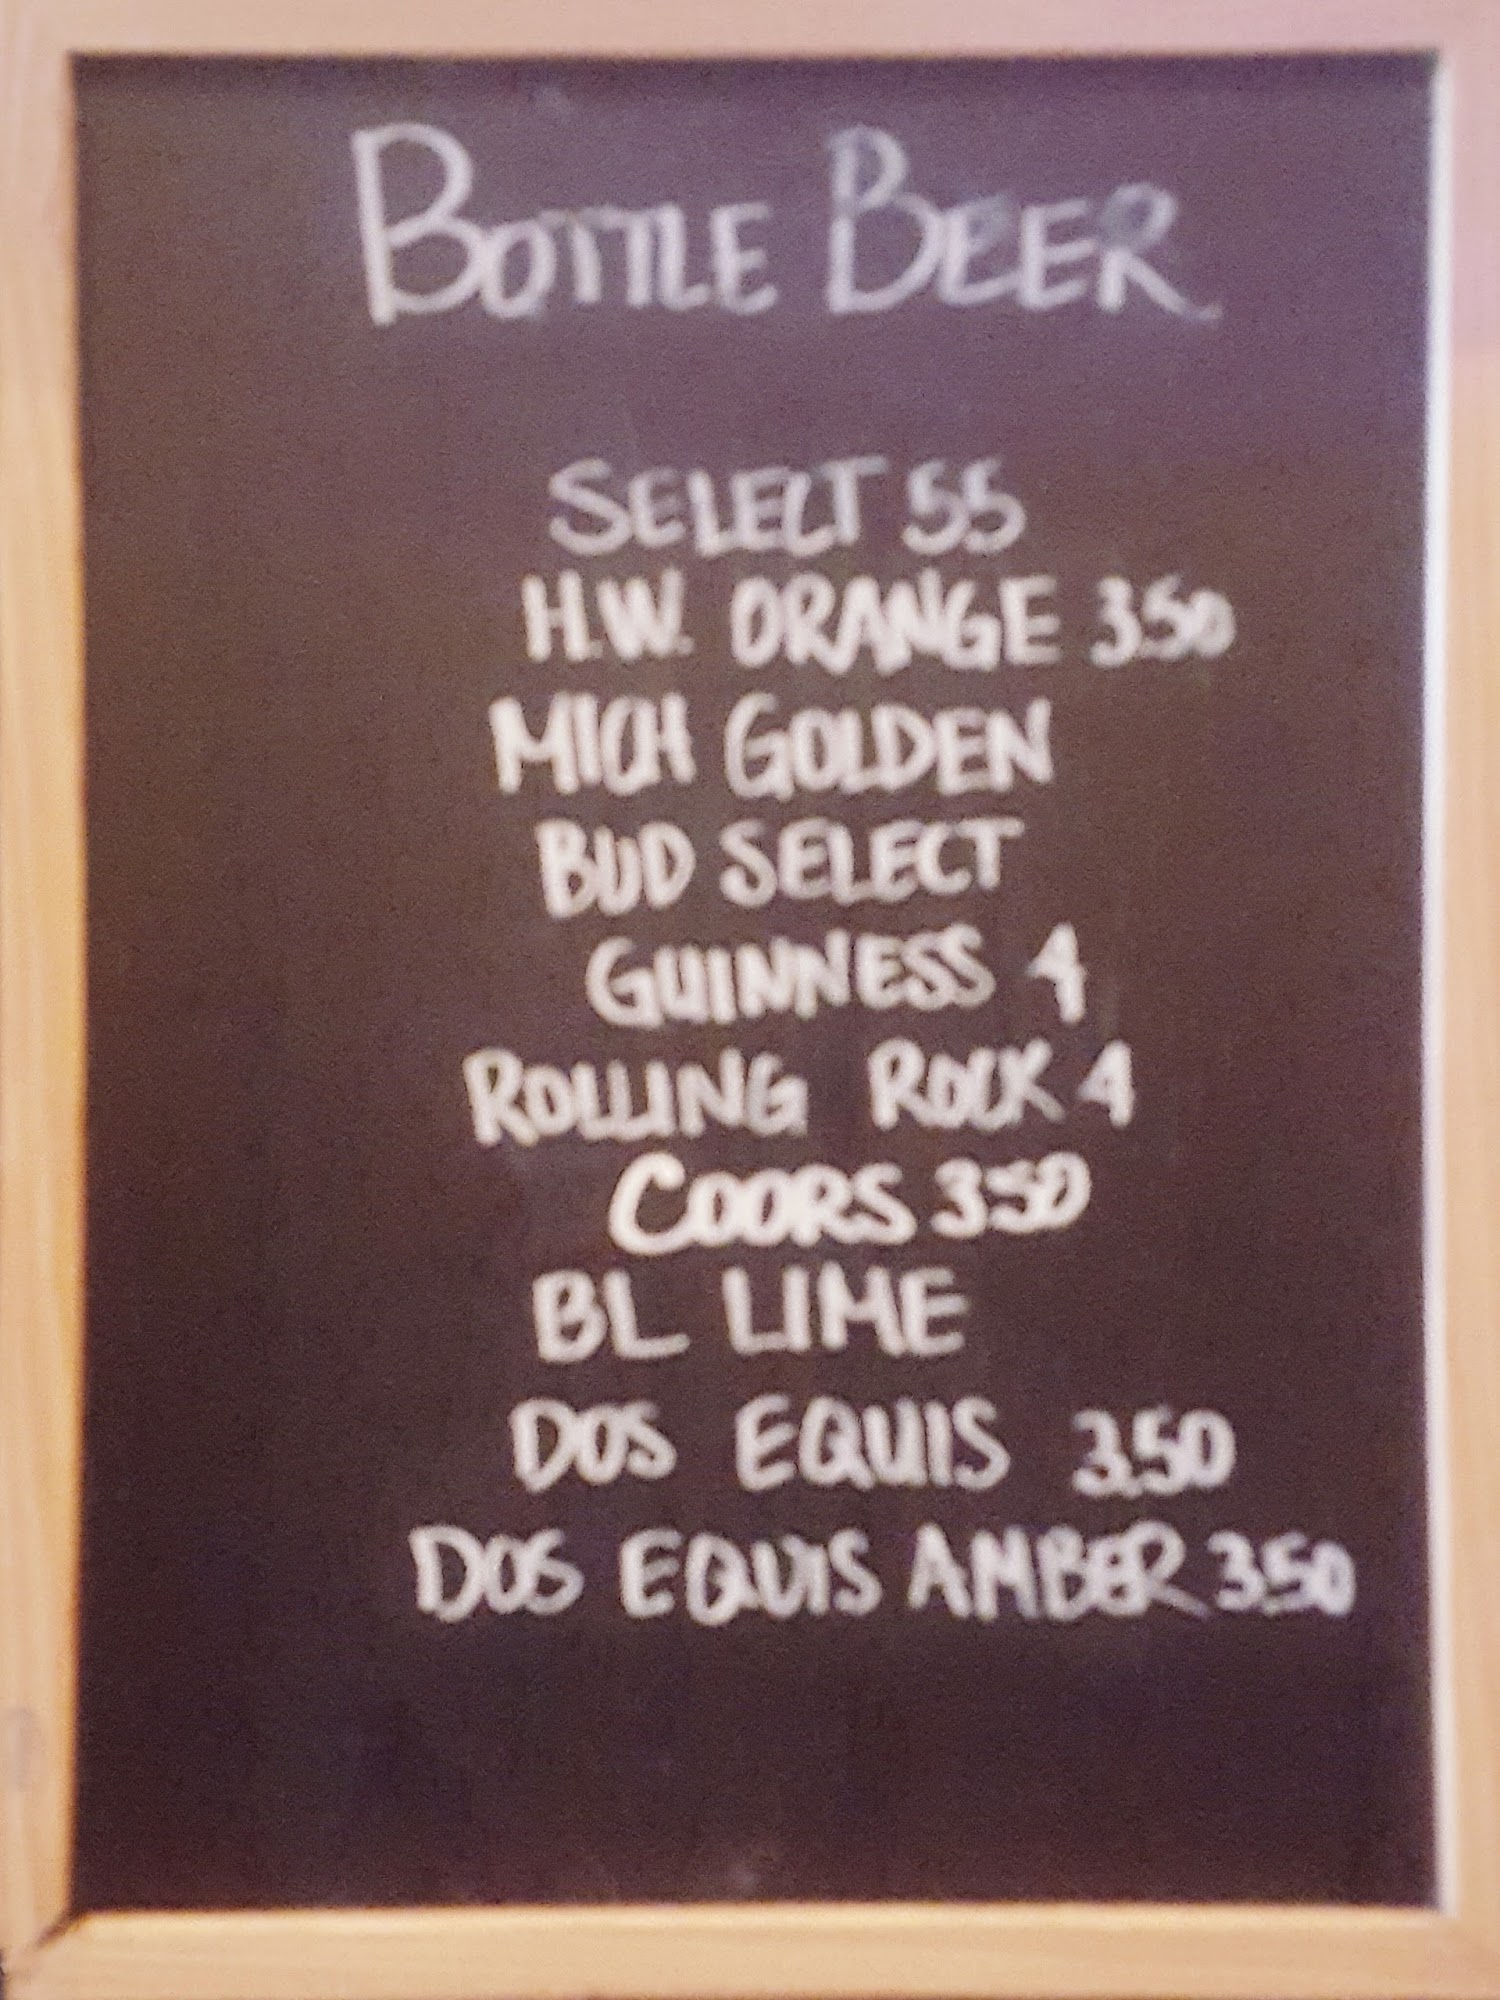 BOTTLE BEER
SELECT 55
H.W. ORANGE 3.50
MICH GOLDEN
BUD SELECT
GUINNESS 4
ROLLING ROCK 4
COORS 350
BL LIME
DOS EQUIS 3.50
DOS EQUIS AMBER 3.50